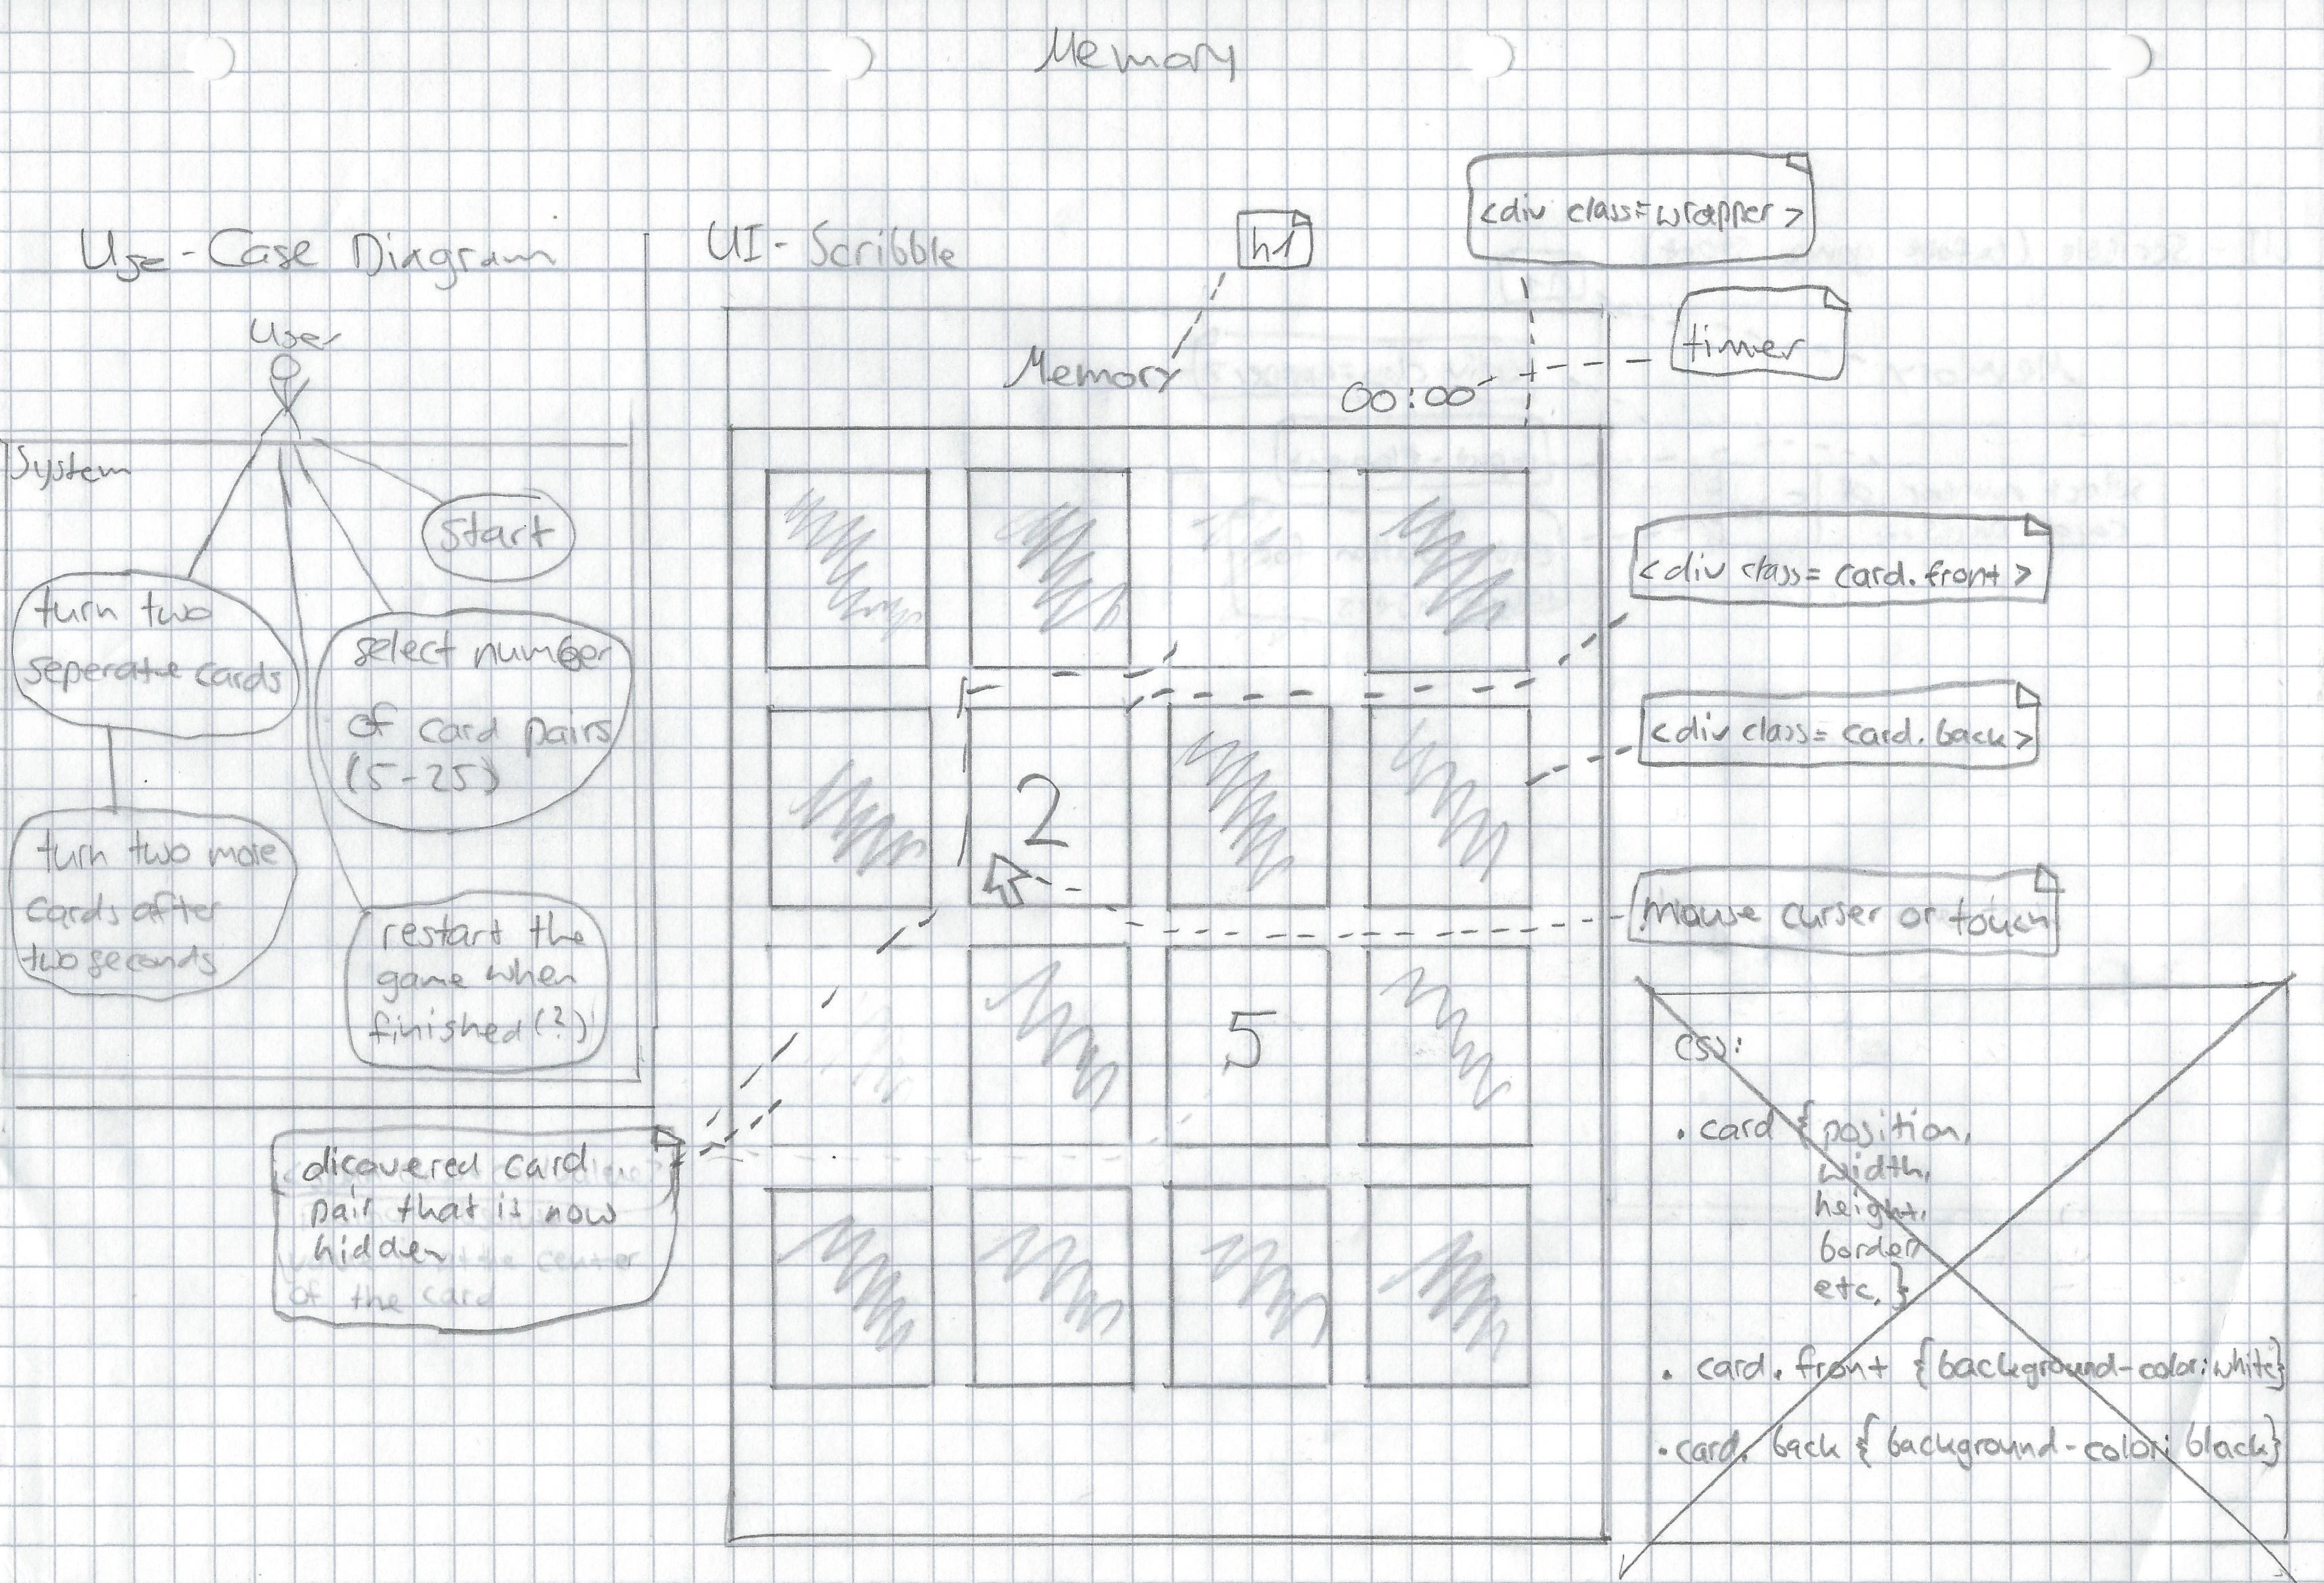 Memory
Use-Case Diagram
User
System
Start
turn two
seperate cards
select number
of card pairs
(5-25)
turn two more
cards after
two seconds
restart the
game when
finished (?)
UI-Scribble
h1
<div class=wrapper>
timer
Memory
00:00
<div class= card.front>
2
<div class= card.back>
mouse curser or touch
5
dicovered card
pair that is now
hidden
of the card
css:
.card {position,
width,
height,
border
etc.}
.card.front {background-color:white}
.card.back {background-color: black}